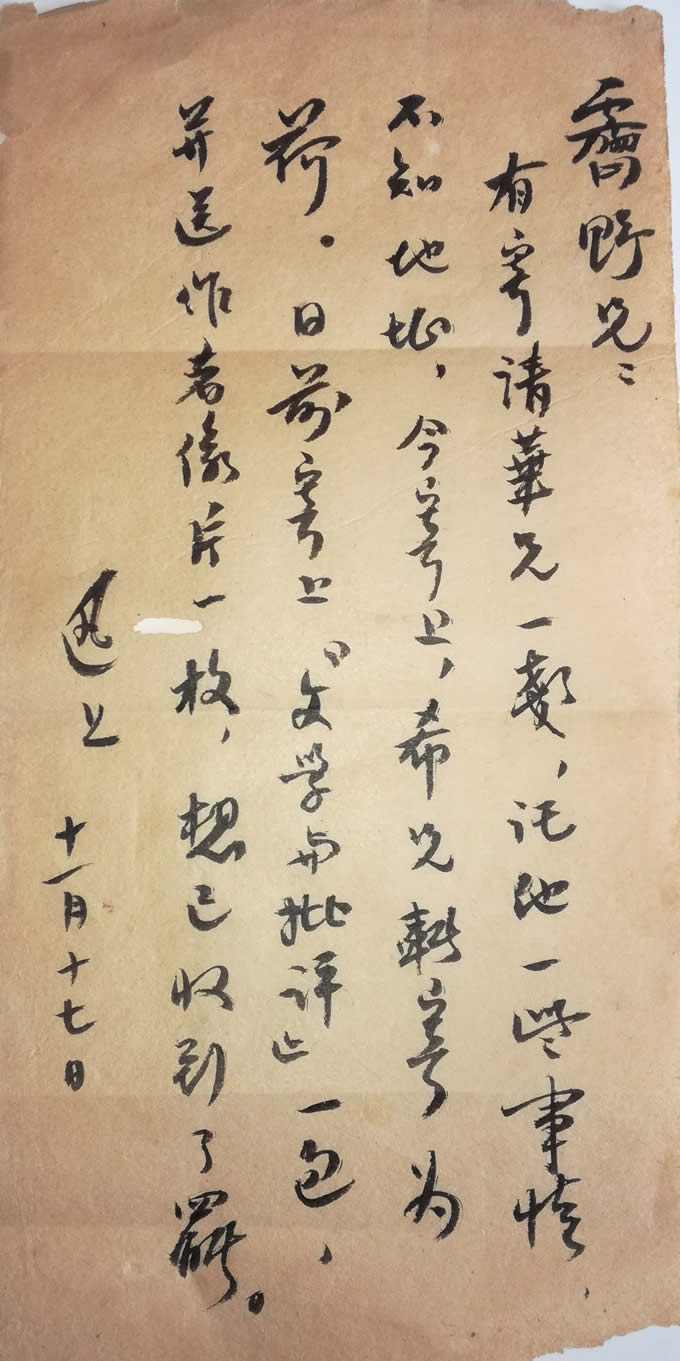 霽野兄：
有寄請華兄一，託他一些事情，
不知地址，今寄上，希兄轉寄为
荷。日前寄上《文学与批评》一包，
并送作者像片一枚，想已收到了罷。
迅上 十一月十七日